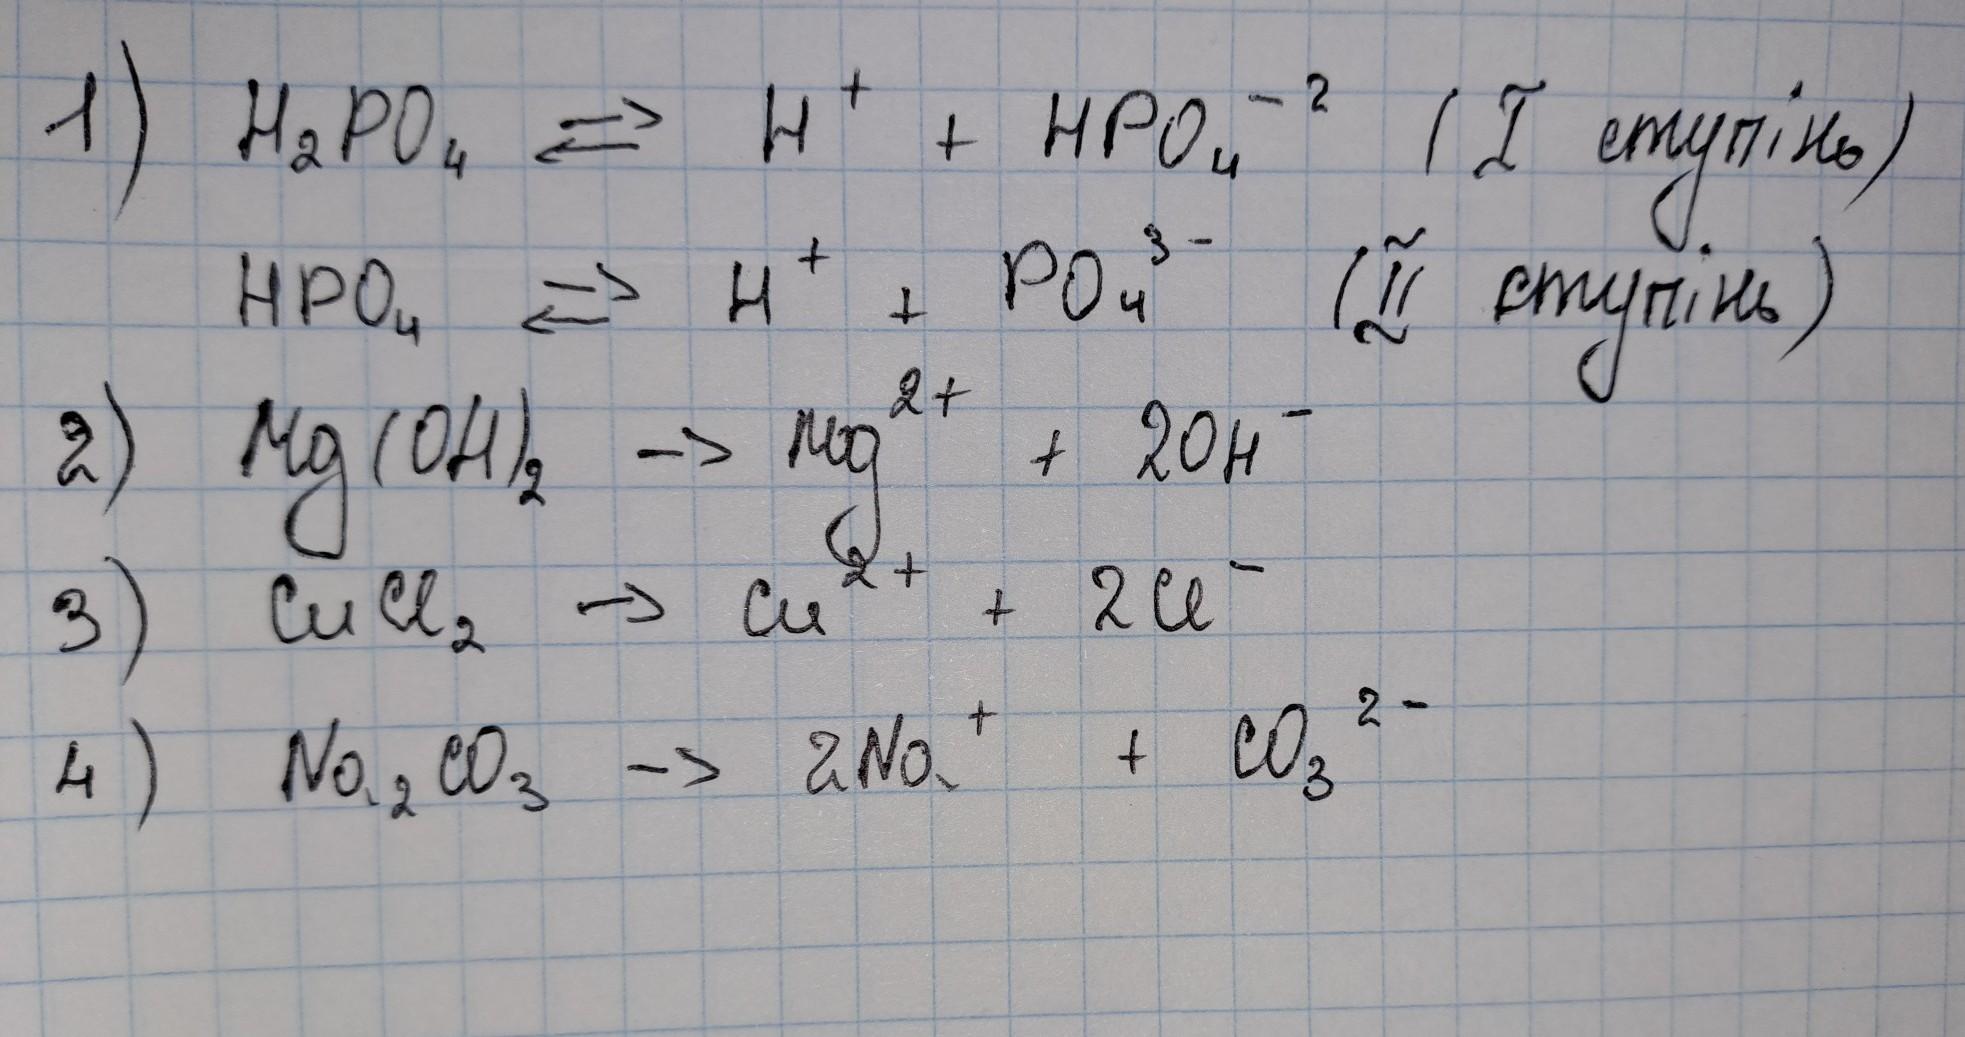 1) H₂PO₄ ⇄ H⁺ + HPO₄⁻² (I ступінь)
HPO₄ ⇄ H⁺ + PO₄³⁻ (II ступінь)
2) Mg(OH)₂ -> Mg²⁺ + 2OH⁻
3) CuCl₂ -> Cu²⁺ + 2Cl⁻
4) Na₂CO₃ -> 2Na⁺ + CO₃²⁻